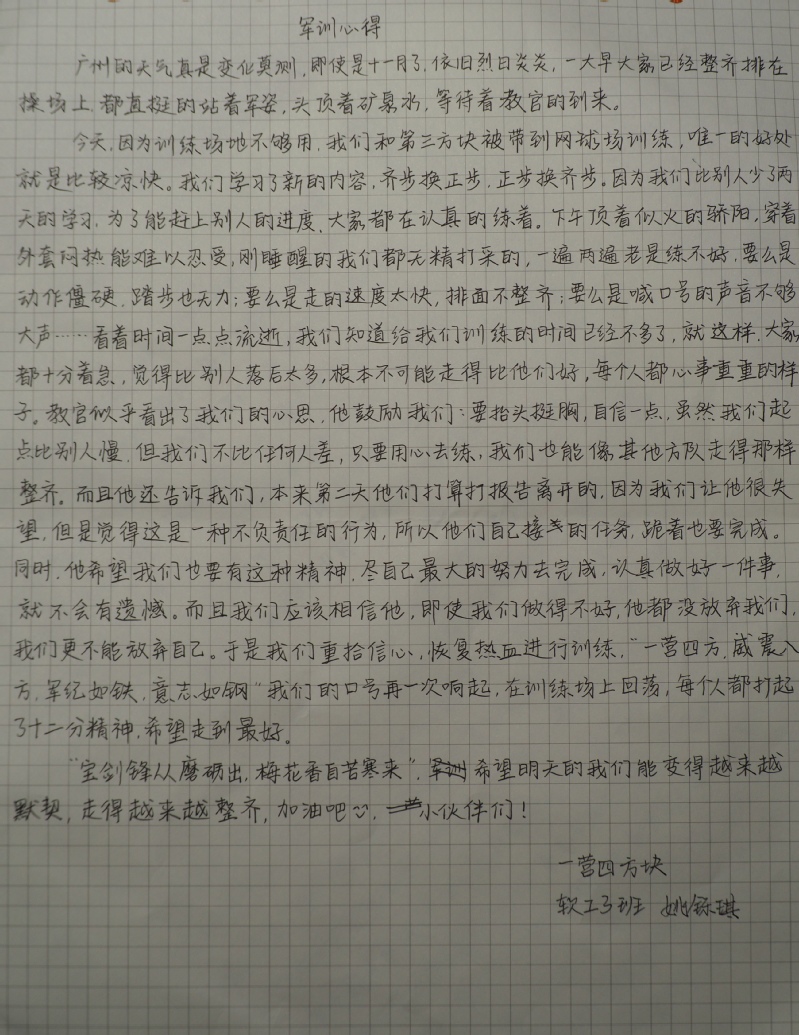 军训心得
广州的天气真是变化莫测,即使是十一月了,依旧烈日炎炎,一大早大家已经整齐排在
操场上,都直挺的站着军姿,头顶着矿泉水,等待着教官的到来。
今天,因为训练场地不够用,我们和第三方块被带到网球场训练,唯一的好处
就是比较凉快。我们学习了新的内容,齐步换正步,正步换齐步。因为我们比别人少了两
天的学习,为了能赶上别人的进度,大家都在认真的练着。下午顶着似火的骄阳,穿着
外套闷热能难以忍受,刚睡醒的我们都无精打采的,一遍两遍老是练不好,要么是
动作僵硬,踏步也无力;要么是走的速度太快,排面不整齐;要么是喊口号的声音不够
大声……看着时间一点点流逝,我们知道给我们训练的时间已经不多了,就这样,大家
都十分着急,觉得比别人落后太多,根本不可能走得比他们好,每个人都心事重重的样
子。教官似乎看出了我们的心思,他鼓励我们:要抬头挺胸,自信一点,虽然我们起
点比别人慢,但我们不比任何人差,只要用心去练,我们也能像其他方队走得那样
整齐。而且他还告诉我们,本来第二天他们打算打报告离开的,因为我们让他很失
望,但是觉得这是一种不负责任的行为,所以他们自己接的任务,跪着也要完成。
同时,他希望我们也要有这种精神,尽自己最大的努力去完成,认真做好一件事,
就不会有遗憾。而且我们应该相信他,即使我们做得不好,他都没放弃我们,
我们更不能放弃自己。于是我们重拾信心,恢复热血进行训练,"一营四方,威震八
方,军纪如铁,意志如钢"我们的口号再一次响起,在训练场上回荡,每个人都打起
了十二分精神,希望走到最好。
"宝剑锋从磨砺出,梅花香自苦寒来",希望明天的我们能变得越来越
默契,走得越来越整齐,加油吧,小伙伴们!
一营四方块
软工3班 姚琪